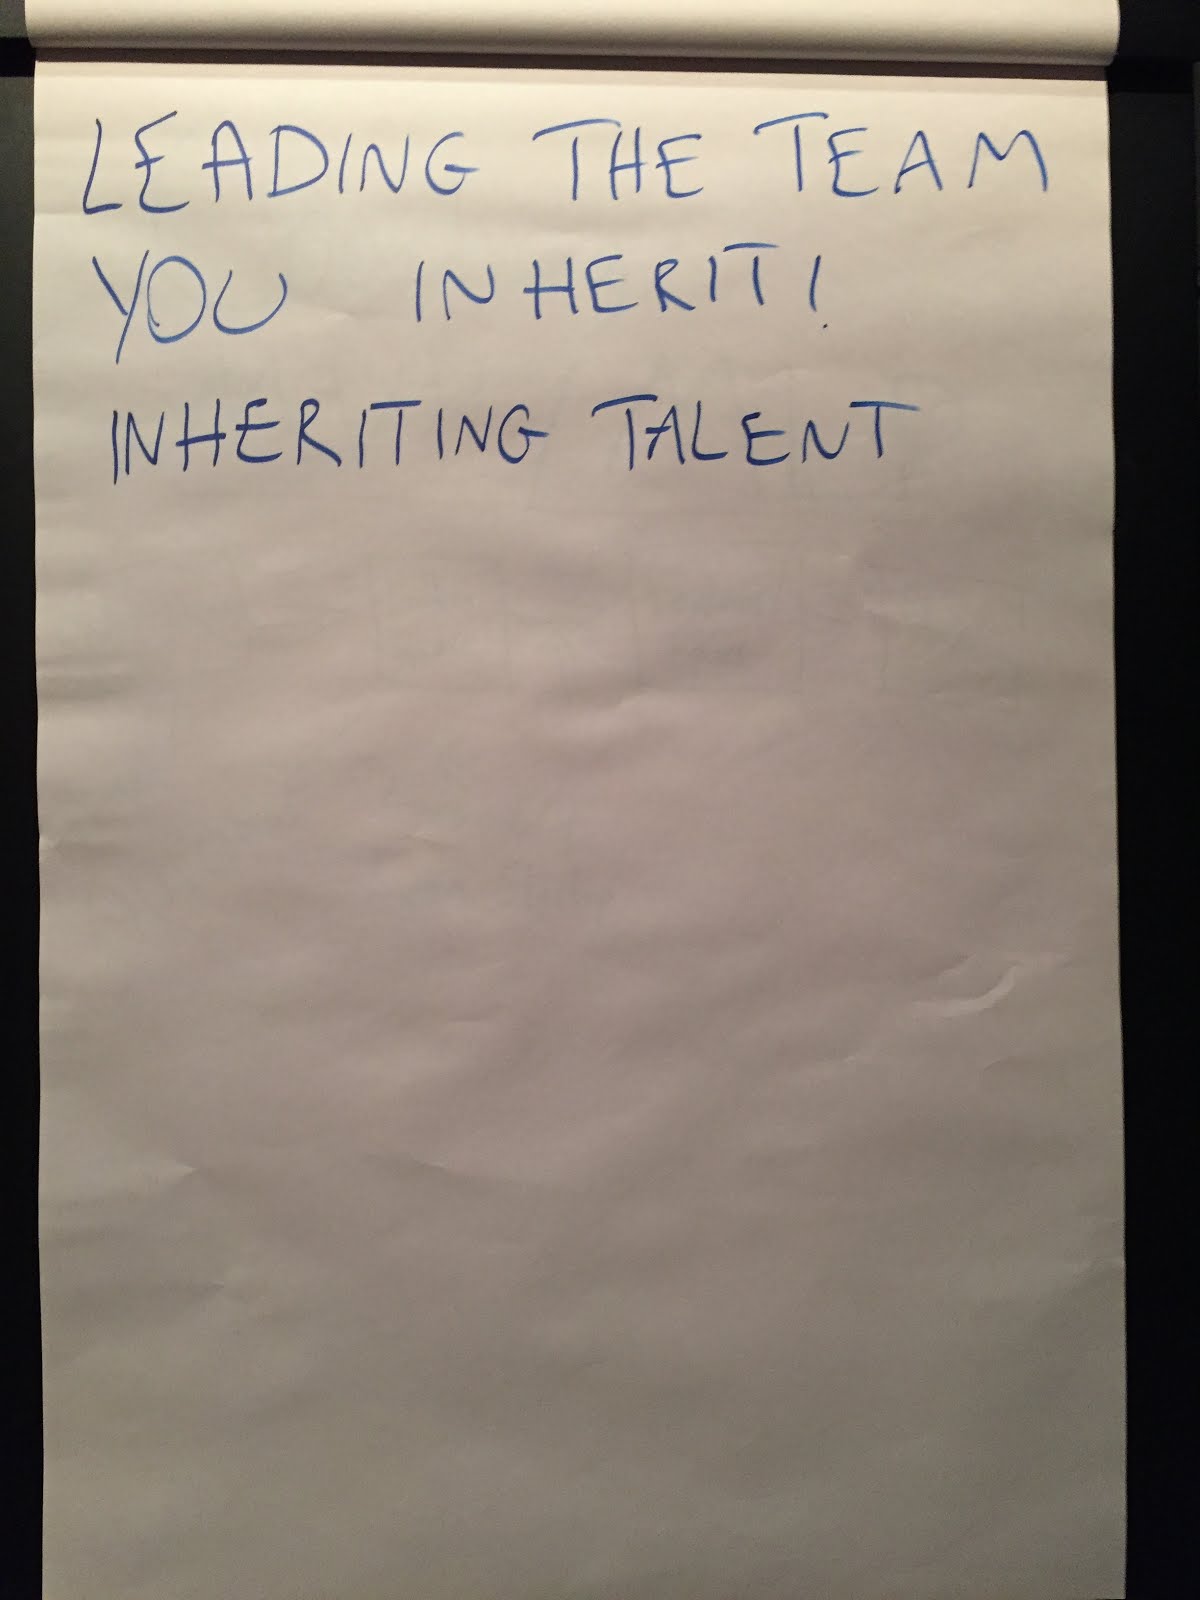 LEADING THE TEAM
YOU INHERIT!
INHERITING TALENT